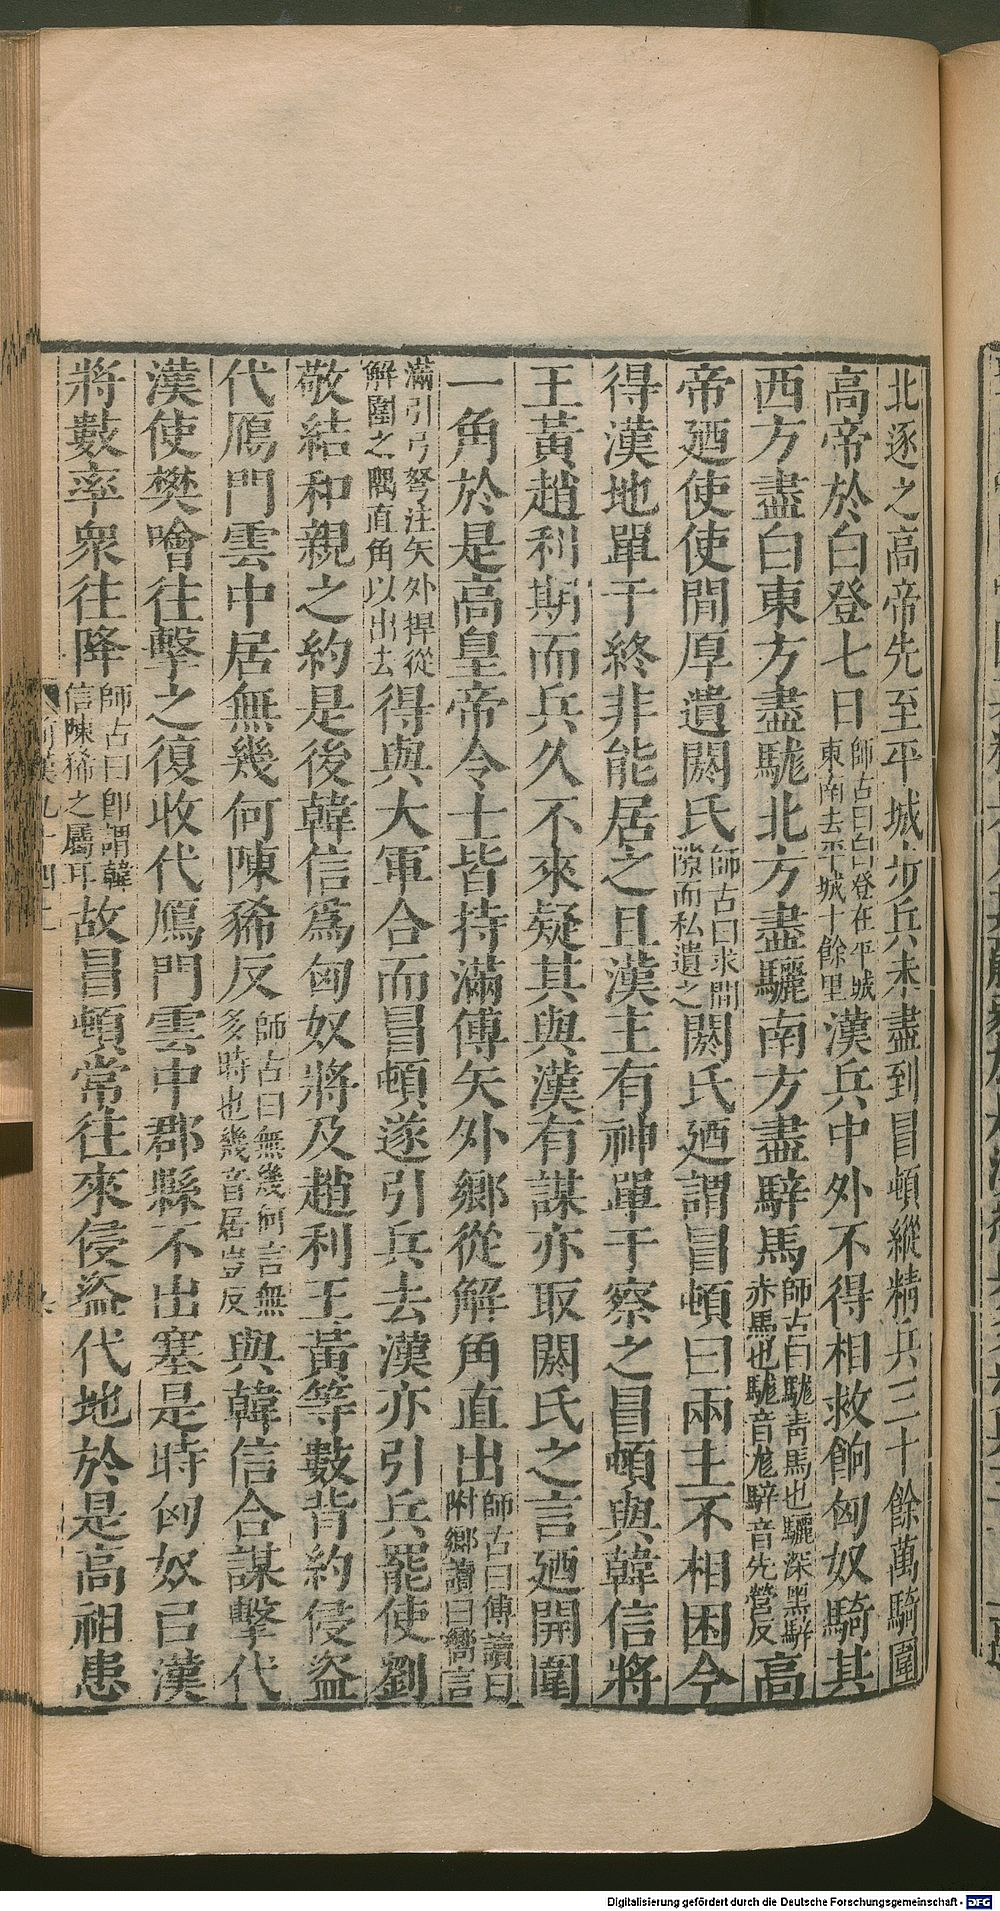 北逐之高帝先至平城步兵未盡到冒頓縱精兵三十餘萬騎圍
高帝於白登七日師古曰白登在平城東南去平城十餘里漢兵中外不得相救餉匈奴騎其
西方盡白東方盡駹北方盡驪南方盡騂馬師古曰駹靑馬也驪深黑騂赤馬也駹音尨騂音先營反高
帝廼使使閒厚遺閼氏師古曰求間隙而私遺之閼氏廼謂冒頓曰兩主不相困今
得漢地單于終非能居之且漢主有神單于察之冒頓與韓信將
王黃趙利期而兵久不來疑其與漢有謀亦取閼氏之言廼開圍
一角於是高皇帝令士皆持滿傅矢外鄉從解角直出師古曰傅讀曰附鄉讀曰嚮言
滿引弓弩注矢外捍從解圍之隅直角以出去得與大軍合而冒頓遂引兵去漢亦引兵罷使劉
敬結和親之約是後韓信爲匈奴將及趙利王黃等數背約侵盜
代鴈門雲中居無幾何陳豨反師古曰無幾何言無多時也幾音居豈反與韓信合謀擊代
漢使樊噲往擊之復收代鴈門雲中郡縣不出塞是時匈奴㠯漢
將數率衆往降師古曰卽謂韓信陳豨之屬耳故冒頓常往來侵盜代地於是高祖患
Digitalisierung gefördert durch die Deutsche Forschungsgemeinschaft - DFG